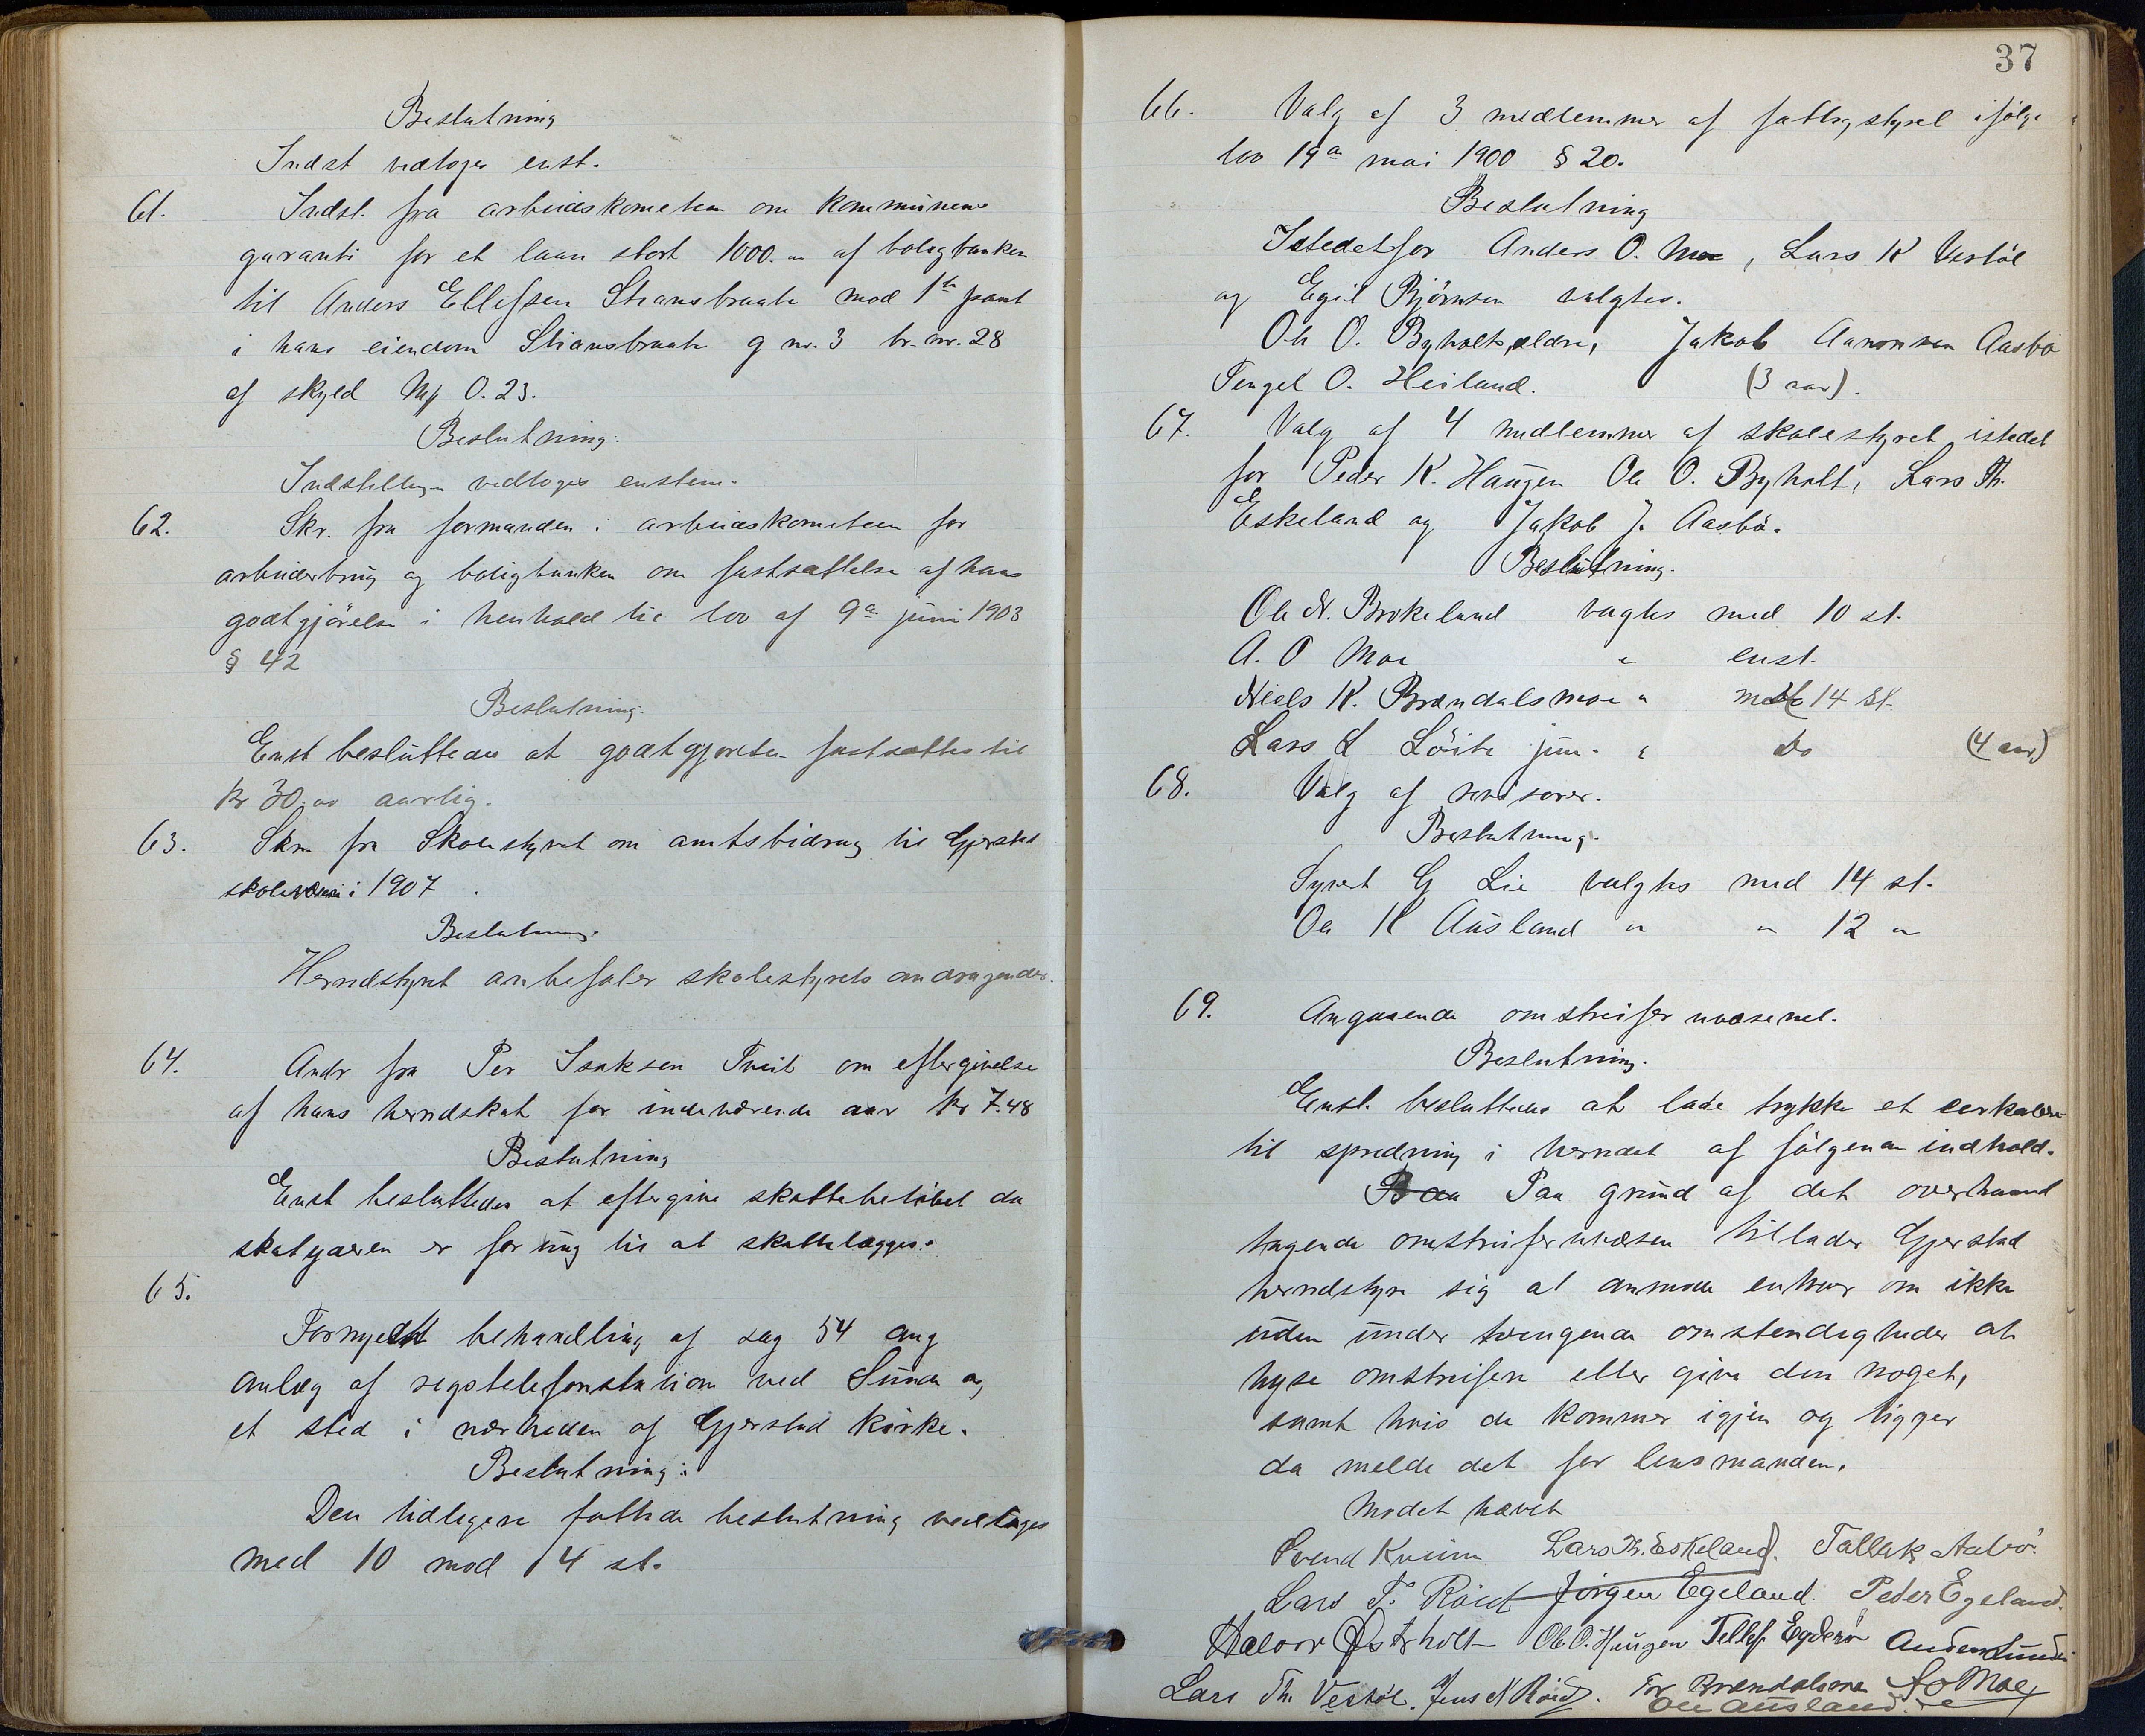 Beslutning
Indst vedtoges enst.
61. Indst. fra arbeiderkometeen om kommunens
garanti for et laan stort 1000.00 af boligbanken
til Anders Ellefsen Stiansbraate mod 1ste pant
i hans eiendom Stiansbraate g nr. 3 br. nr. 28
af skyld Mk 0.23.
Beslutning:
Indstillingen vedtoges enstem.
62. Skr. fra formanden i arbeiderkometeen for
arbeiderbrug og boligbanken om fastsættelse af hans
godtgjörelse i henhold til lov af 9de juni 1903
§ 42
Beslutning.
Enst besluttedes at godtgjörelsen fastsættes til
Kr 30.00 aarlig.
63. Skr. fra Skolestyret om amtsbidrag til Gjerstad
skolevæsen i 1907.
Beslutning.
Herredstyret anbefaler skolestyrets andragender.
64. Andr fra Per Isaksen Tveit om eftergivelse
af hans herredskat for indeværende aar Kr 7.48
Beslutning
Enst besluttedes at eftergive skattebelöbet da
skatyderen er for ung til at skattelægges.
65.
Fornyet behandling af sag 54 ang
anlæg af rigstelefonstation ved Sunde og
et sted i nærheden af Gjerstad kirke.
Beslutning:
Den tidligere fattede beslutning vedtages
med 10 mod 4 st.
37
66. Valg af 3 medlemmer af fattigstyret ifölge
lov 19de mai 1900 § 20.
Beslutning
Istedetfor Anders O. Moe, Lars K Vestöl
og Egil Björnsen valgtes.
Ole O. Byholt, ældre, Jakob Aanonsen Aasbö
Tengel O. Heiland. (3 aar).
67. Valg af 4 medlemmer af skolestyret istedet
for Peder K. Haugen Ole O. Byholt, Lars Th.
Eskeland og Jakob J. Aasbö.
Beslutning.
Ole N. Brokeland valgtes med 10 st.
A. O Moe " enst.
Niels K. Brændalsmoe " med 14 st.
Lars L Löite jun. " do (4 aar)
68. Valg af revisorer.
Beslutning.
Syvert G Lie valgtes med 14 st.
Ole K Ausland " " 12 "
69. Angaaende omstreiferuvæsenet.
Beslutning.
Enst. besluttedes at lade trykke et cerkulære
til spredning i herredet af fölgende indhold.
Paa grund af det overhaand
tagende omstreiferuvæsen tillader Gjerstad
herredstyre sig at anmode enhver om ikke
uden under tvingende omstendigheder at
hyse omstreifere eller give dem noget,
samt hvis de kommer igjen og tigger
da melde det for lensmanden.
Mödet hævet
Svend Kveim Lars Th. Eskeland. Tallak Aasbö.
Lars T. Röed Jörgen Egeland. Peder Egeland.
Halvor Østerholt Ole O. Haugen Tellef Egderö Anders Sunde
Lars Th. Vestöl. Jens N Röed. Tor Brændalsmoe A O Moe
Ole Ausland.